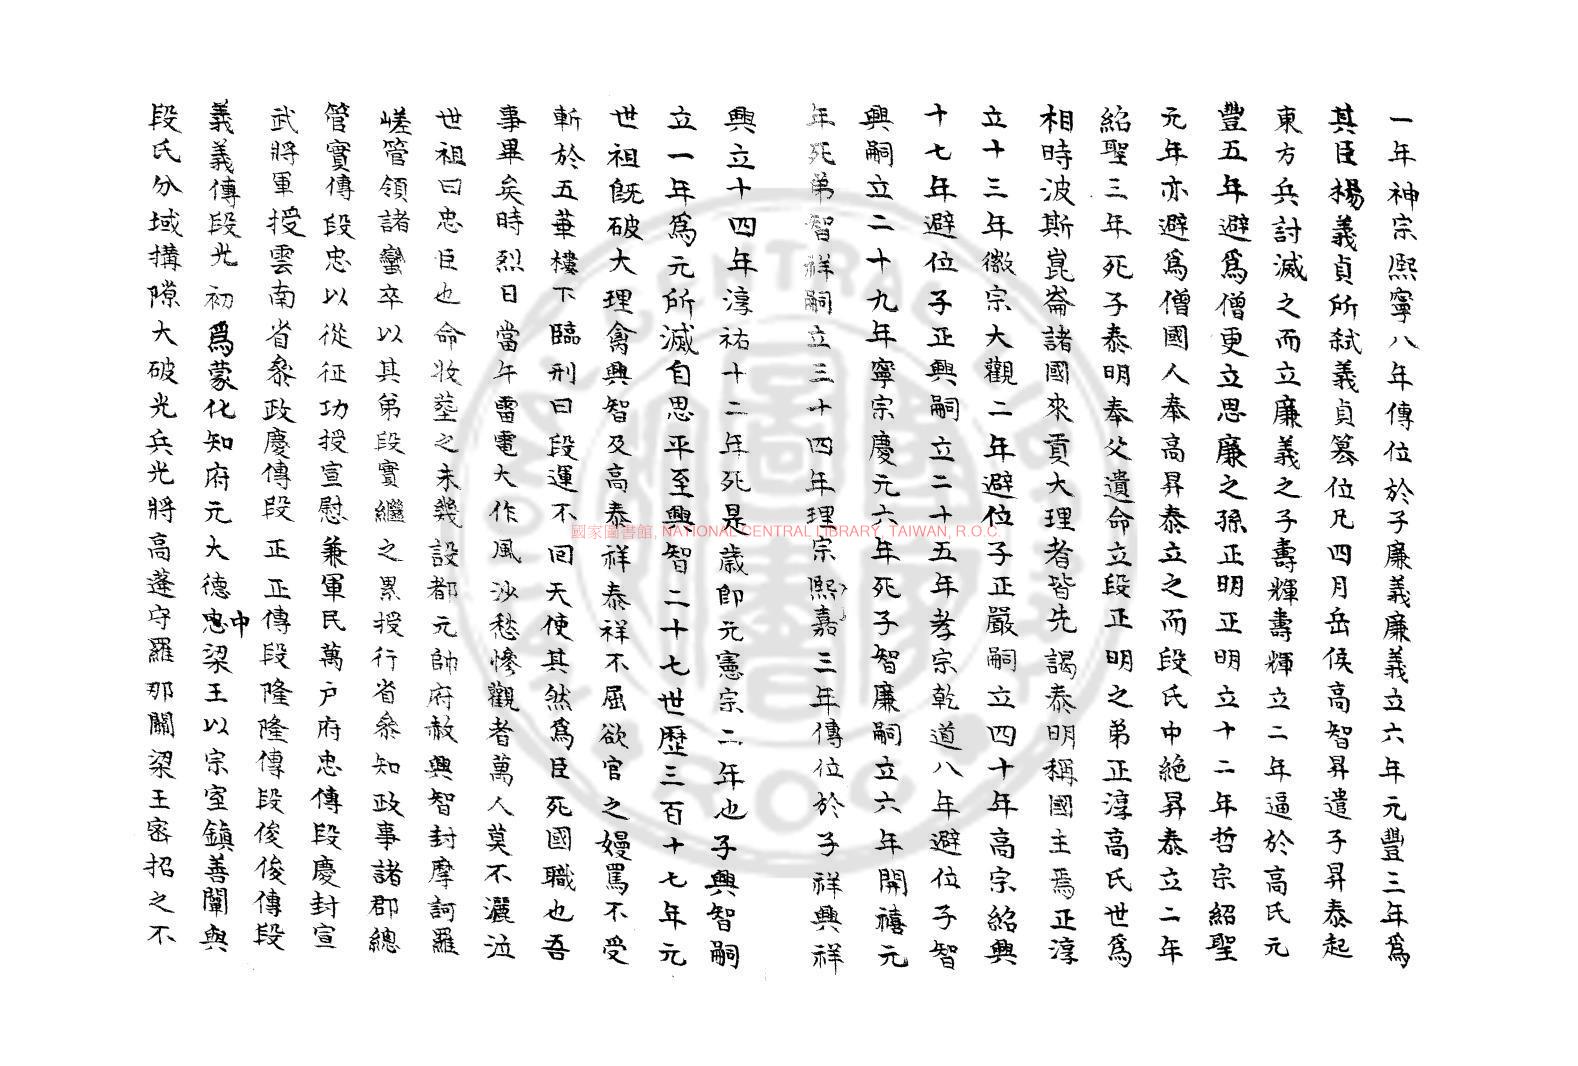 一年神宗熙寧八年傳位於子廉義廉義立六年元豐三年爲
其臣楊義貞所弑義貞簒位凡四月岳侯高智昇遣子昇泰起
東方兵討滅之而立廉義之子壽輝壽輝立二年逼於高氏元
豐五年避爲僧更立思廉之孫正明正明立十二年哲宗紹聖
元年亦避爲僧國人奉高昇泰立之而段氏中絶昇泰立二年
紹聖三年死子泰明奉父遺命立段正明之弟正淳高氏世爲
相時波斯崑崙諸國來貢大理者皆先謁泰明稱國主焉正淳
立十三年徽宗大觀二年避位子正嚴嗣立四十年高宗紹興
十七年避位子正興嗣立二十五年孝宗乾道八年避位子智
興嗣立二十九年寧宗慶元六年死子智廉嗣立六年開禧元
年死弟智祥嗣立三十四年理宗熙嘉三年傳位於子祥興祥
興立十四年淳祐十二年死是歲即元憲宗二年也子興智嗣
立一年爲元所滅自思平至興智二十七世歷三百十七年元
世祖旣破大理禽興智及高泰祥泰祥不屈欲官之嫚罵不受
斬於五華樓下臨刑曰段運不回天使其然爲臣死國職也吾
事畢矣時烈日當午雷電大作風沙愁慘觀者萬人莫不灑泣
世祖曰忠臣也命收葬之未幾設都元帥府赦興智封摩訶羅
嵯管領諸蠻卒以其弟段實繼之累授行省叅知政事諸郡總
管實傳段忠以從征功授宣慰兼軍民萬户府忠傳段慶封宣
武將軍授雲南省叅政慶傳段正正傳段隆隆傳段俊俊傳段
義義傳段光初爲蒙化知府元大德忠中梁王以宗室鎮善闡與
段氏分域搆隙大破光兵光將高蓬守羅那關梁王密招之不
國家圖書館, NATIONAL CENTRAL LIBRARY, TAIWAN, R.O.C.